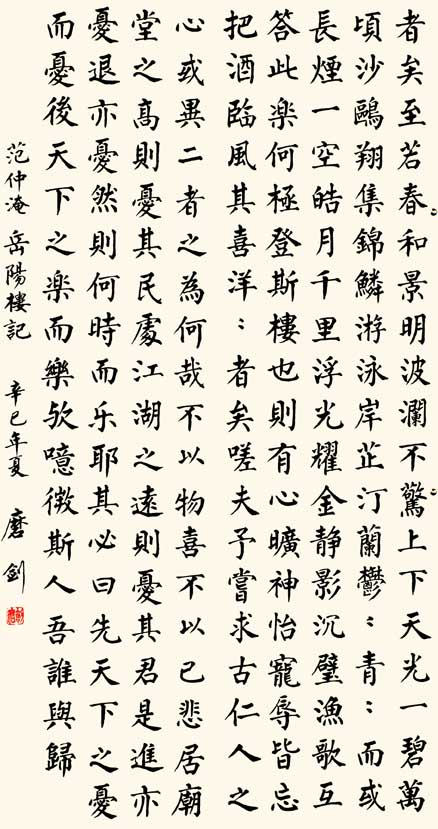 者矣至若春和景明波瀾不驚上下天光一碧萬
頃沙鷗翔集錦鱗游泳岸芷汀蘭鬱：青：而或
長煙一空皓月千里浮光耀金静影沉璧漁歌互
答此楽何極登斯樓也則有心曠神怡寵辱皆忘
把酒臨風其喜洋：者矣嗟夫予嘗求古仁人之
心或異二者之為何哉不以物喜不以己悲居廟
堂之高則憂其民處江湖之遠則憂其君是進亦
憂退亦憂然則何時而乐耶其必曰先天下之憂
而憂後天下之楽而樂欤噫微斯人吾誰與歸
范仲淹岳陽樓記 辛巳年夏 磨剑